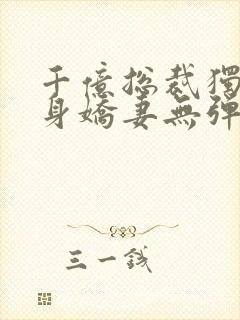 千億总裁獨
身嬌妻無彈
三一钱